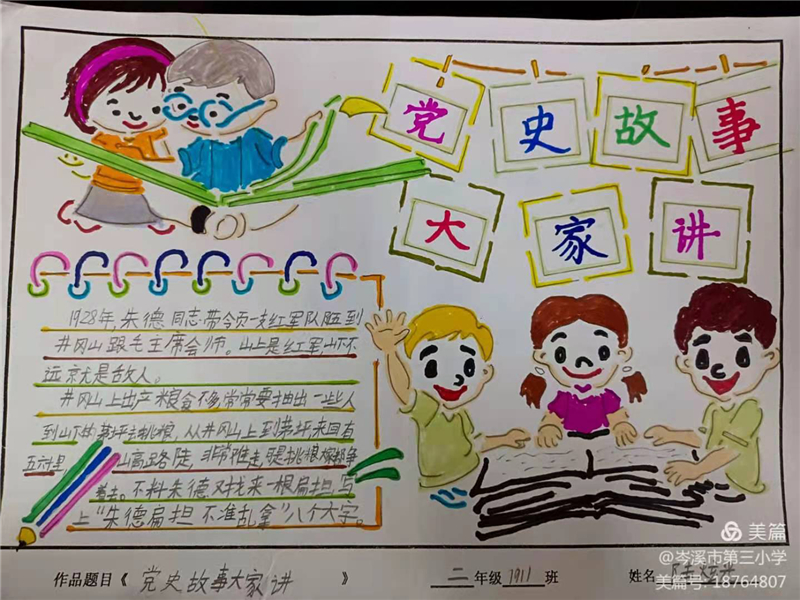 党史故事
大家讲
1928年,朱德同志带领一支红军队伍到
井冈山跟毛主席会师。山上是红军,山下不
远就是敌人。
井冈山上出产粮食不多,常常要抽出一些人
到山下的茅坪去挑粮,从井冈山上到茅坪来回有
五六十里,山高路陡,非常难走,可是挑粮
着去。不料朱德又找来一根扁担,写
上“朱德扁担 不准乱拿”八个大字。
美篇
@岑溪市第三小学
作品题目《 党史故事大家讲 》 二 年级 1911 班 姓名
美篇号: 18764807